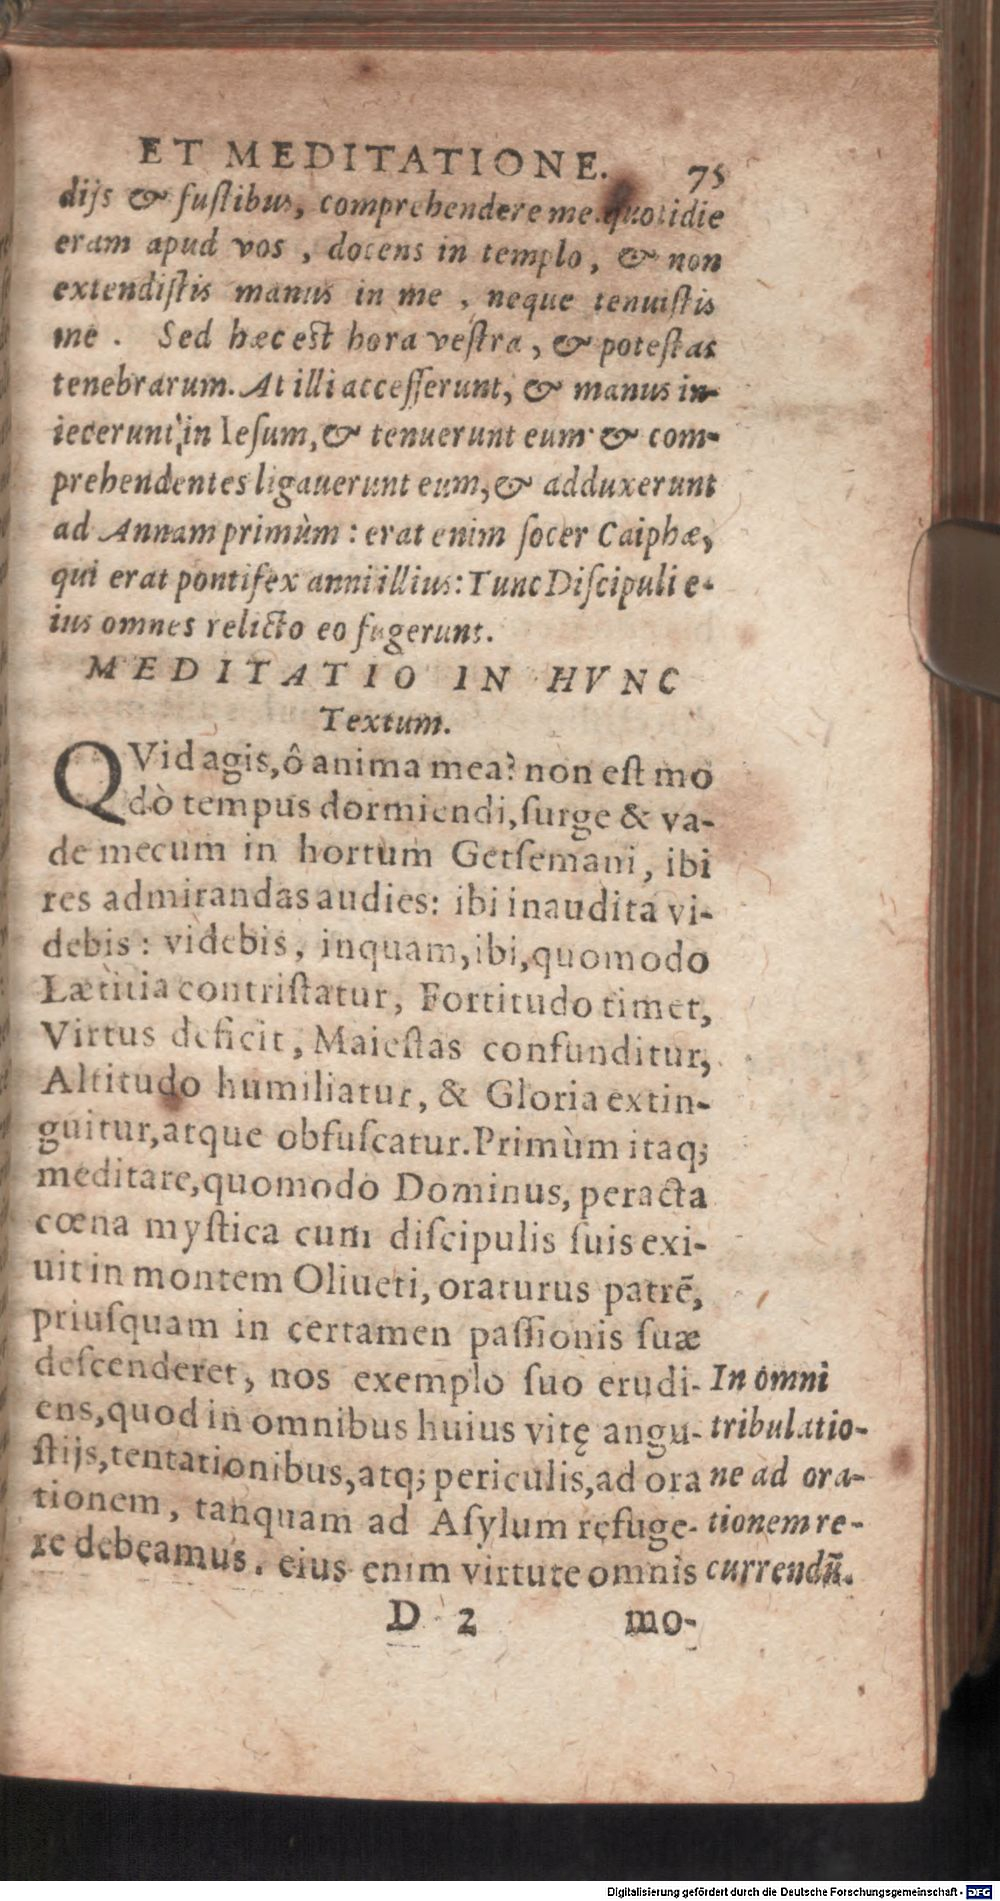 ET MEDITATIONE. 75
dijs & fuſtibus, comprehendere me. quotidie
eram apud vos , docens in templo, & non
extendiſtis manus in me , neque tenuiſtis
me . Sed hæc eſt hora veſtra, & poteſtas
tenebrarum. At illi acceſſerunt, & manus in-
iecerunt, in Ieſum, & tenuerunt eum & com-
prehendentes ligauerunt eum, & adduxerunt
ad Annam primùm : erat enim ſocer Caiphæ,
qui erat pontifex anni illius: Tunc Diſcipuli e-
ius omnes relicto eo fugerunt.
MEDITATIO IN HVNC
Textum.
QVid agis, ô anima mea? non eſt mo
dò tempus dormiendi, ſurge & va-
de mecum in hortum Getſemani, ibi
res admirandas audies: ibi inaudita vi-
debis : videbis, inquam, ibi, quomodo
Lætitia contriſtatur, Fortitudo timet,
Virtus deficit, Maieſtas confunditur,
Altitudo humiliatur, & Gloria extin-
guitur, atque obfuſcatur. Primùm itaq;
meditare, quomodo Dominus, peracta
cœna myſtica cum diſcipulis ſuis exi-
uit in montem Oliueti, oraturus patrẽ,
priuſquam in certamen paſſionis ſuæ
deſcenderet, nos exemplo ſuo erudi- In omni
ens, quod in omnibus huius vitę angu- tribulatio-
ſtijs, tentationibus, atq; periculis, ad ora ne ad ora-
tionem, tanquam ad Aſylum refuge- tionem re-
re debeamus. eius enim virtute omnis currendũ.
D 2 mo-
Digitalisierung gefördert durch die Deutsche Forschungsgemeinschaft - DFG